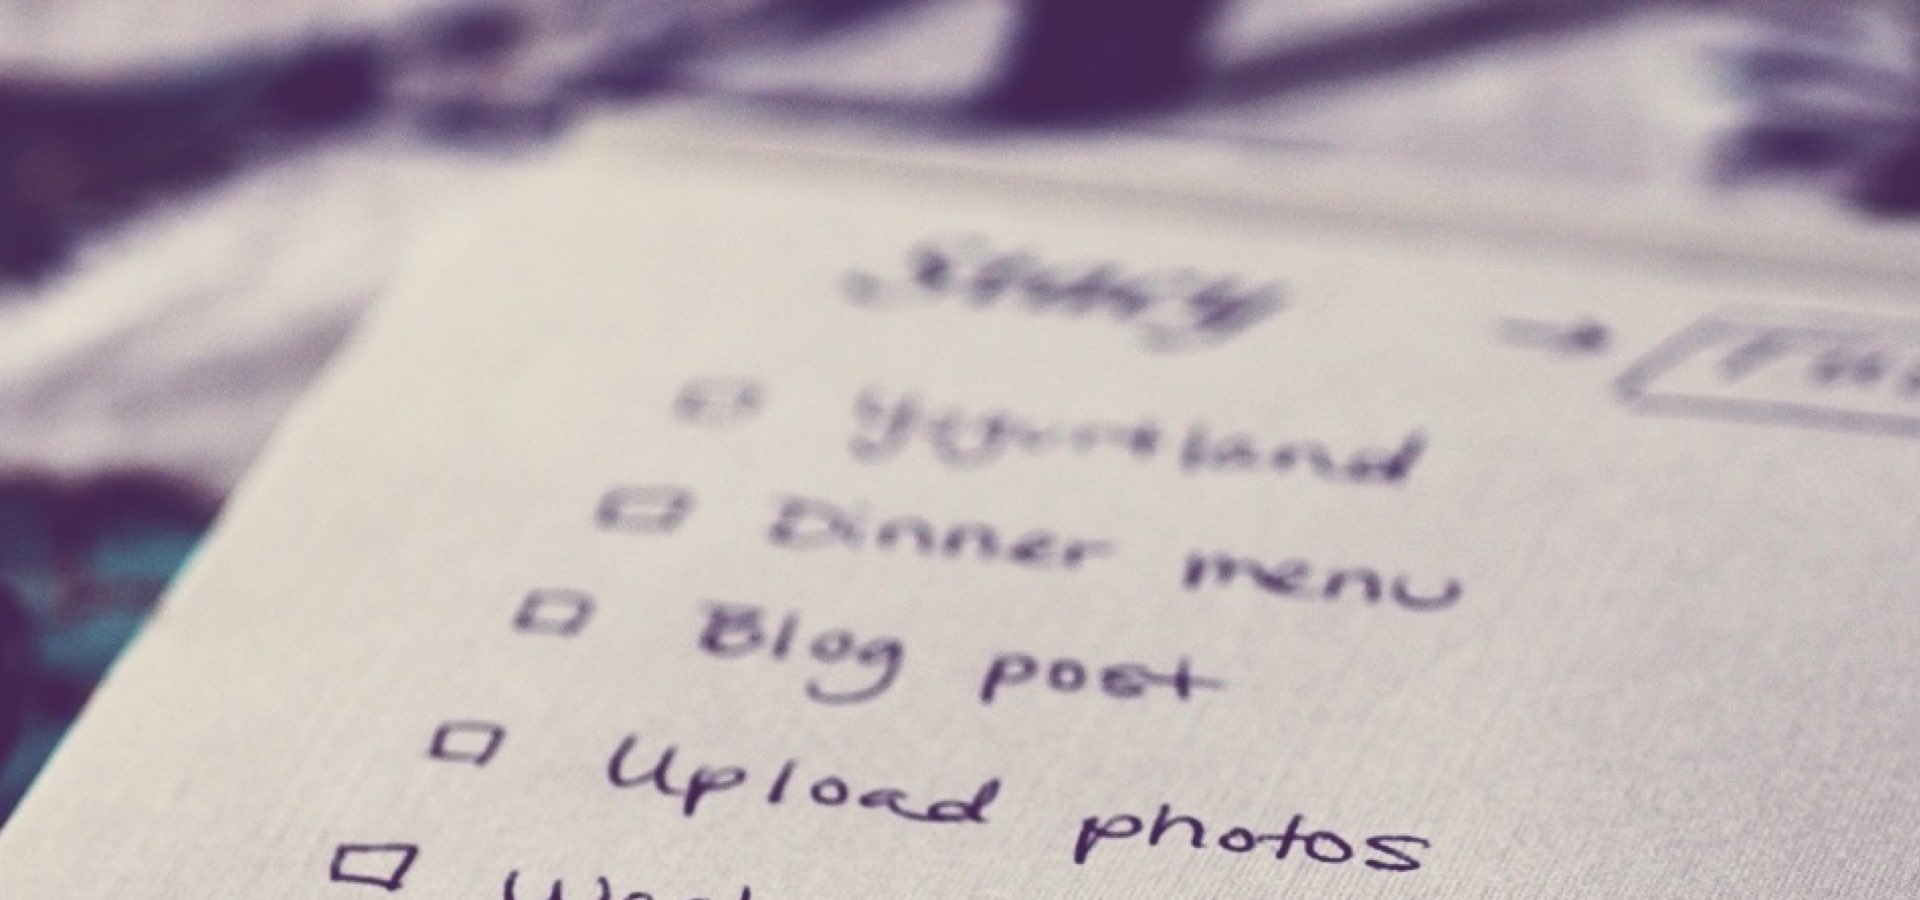 →
□ Yogurtland
□ Dinner menu
□ Blog post
□ Upload photos
□